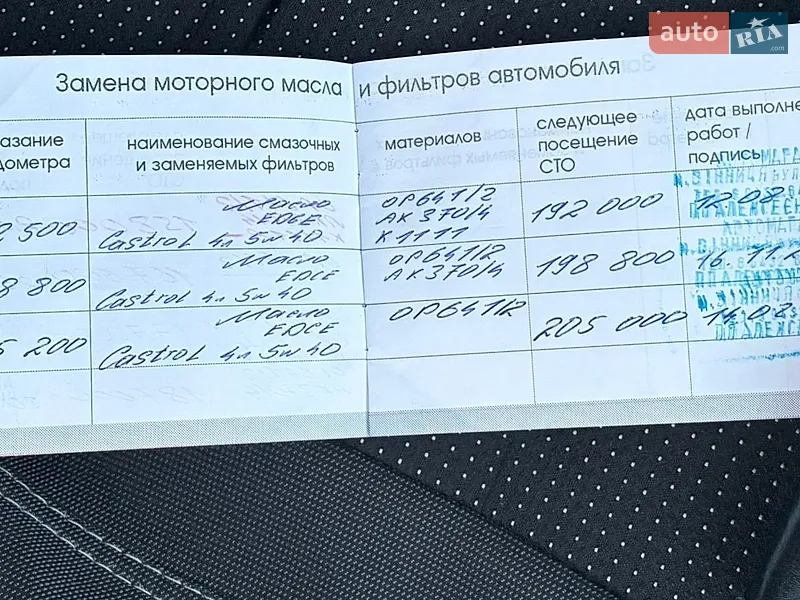 auto RIA .com
Замена моторного масла и фильтров автомобиля
азание
дометра
наименование смазочных
и заменяемых фильтров
материалов
следующее
посещение
СТО
дата выполне
работ /
подпись
2 500
Масло
EDGE
Castrol 4л 5w40
OP641/2
AK370/4
K1111
192 000
12 08
8 800
Масло
EDGE
Castrol 4л 5w40
OP641/2
AK370/4
198 800
16. 11.
5 200
Масло
EDGE
Castrol 4л 5w40
OP641/2
205 000
14.02